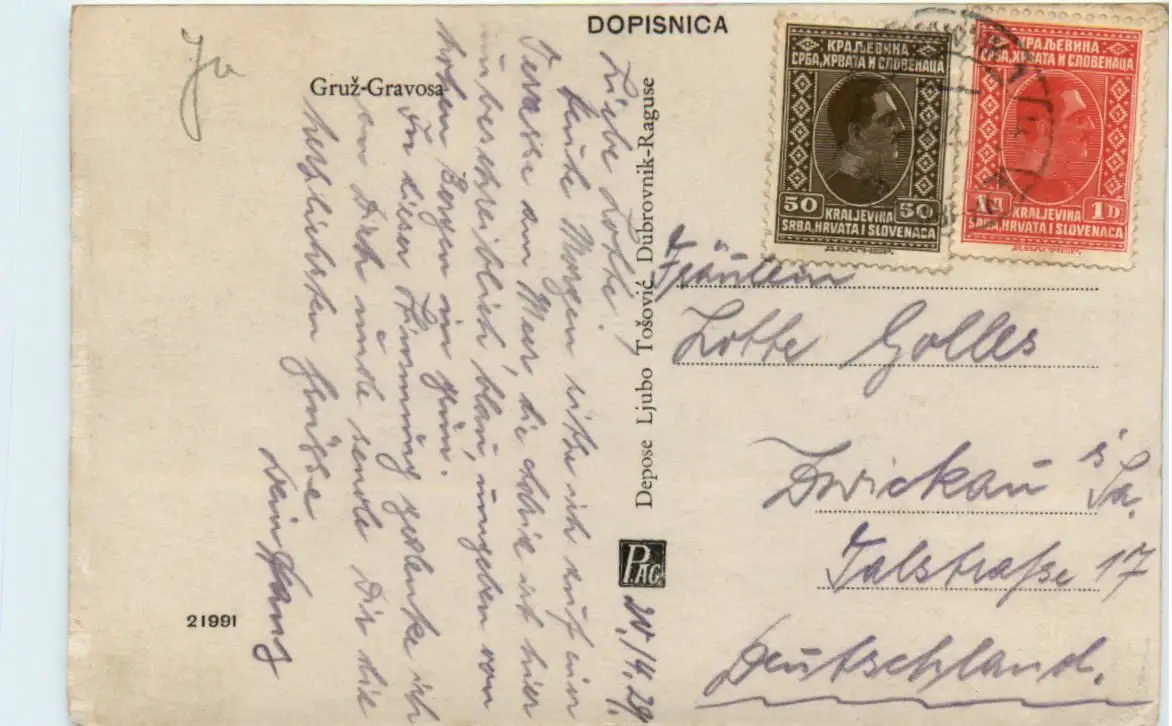 DOPISNICA
КРАЉЕВИНА
СРБА, ХРВАТА И СЛОВЕНАЦА
50 50
KRALJEVINA
SRBA, HRVATA I SLOVENACA
КРАЉЕВИНА
СРБА, ХРВАТА И СЛОВЕНАЦА
1Д 1D
KRALJEVINA
SRBA, HRVATA I SLOVENACA
Gruž-Gravosa
Depose Ljubo Tošović Dubrovnik-Raguse
PAG
21991
20./4. 29
Liebe Lotte!
Heute Morgen sitze ich auf einer
Terasse am Meer, die Adria ist hier
unbeschreiblich blau, umgeben von
hohen Bergen in grün.
In dieser Stimmung gedenke ich
an Dich und sende Dir die
herzlichsten Grüsse
Dein Hans
Fräulein
Lotte Golles
Zwickau i/Sa.
Talstraße 17
Deutschland.